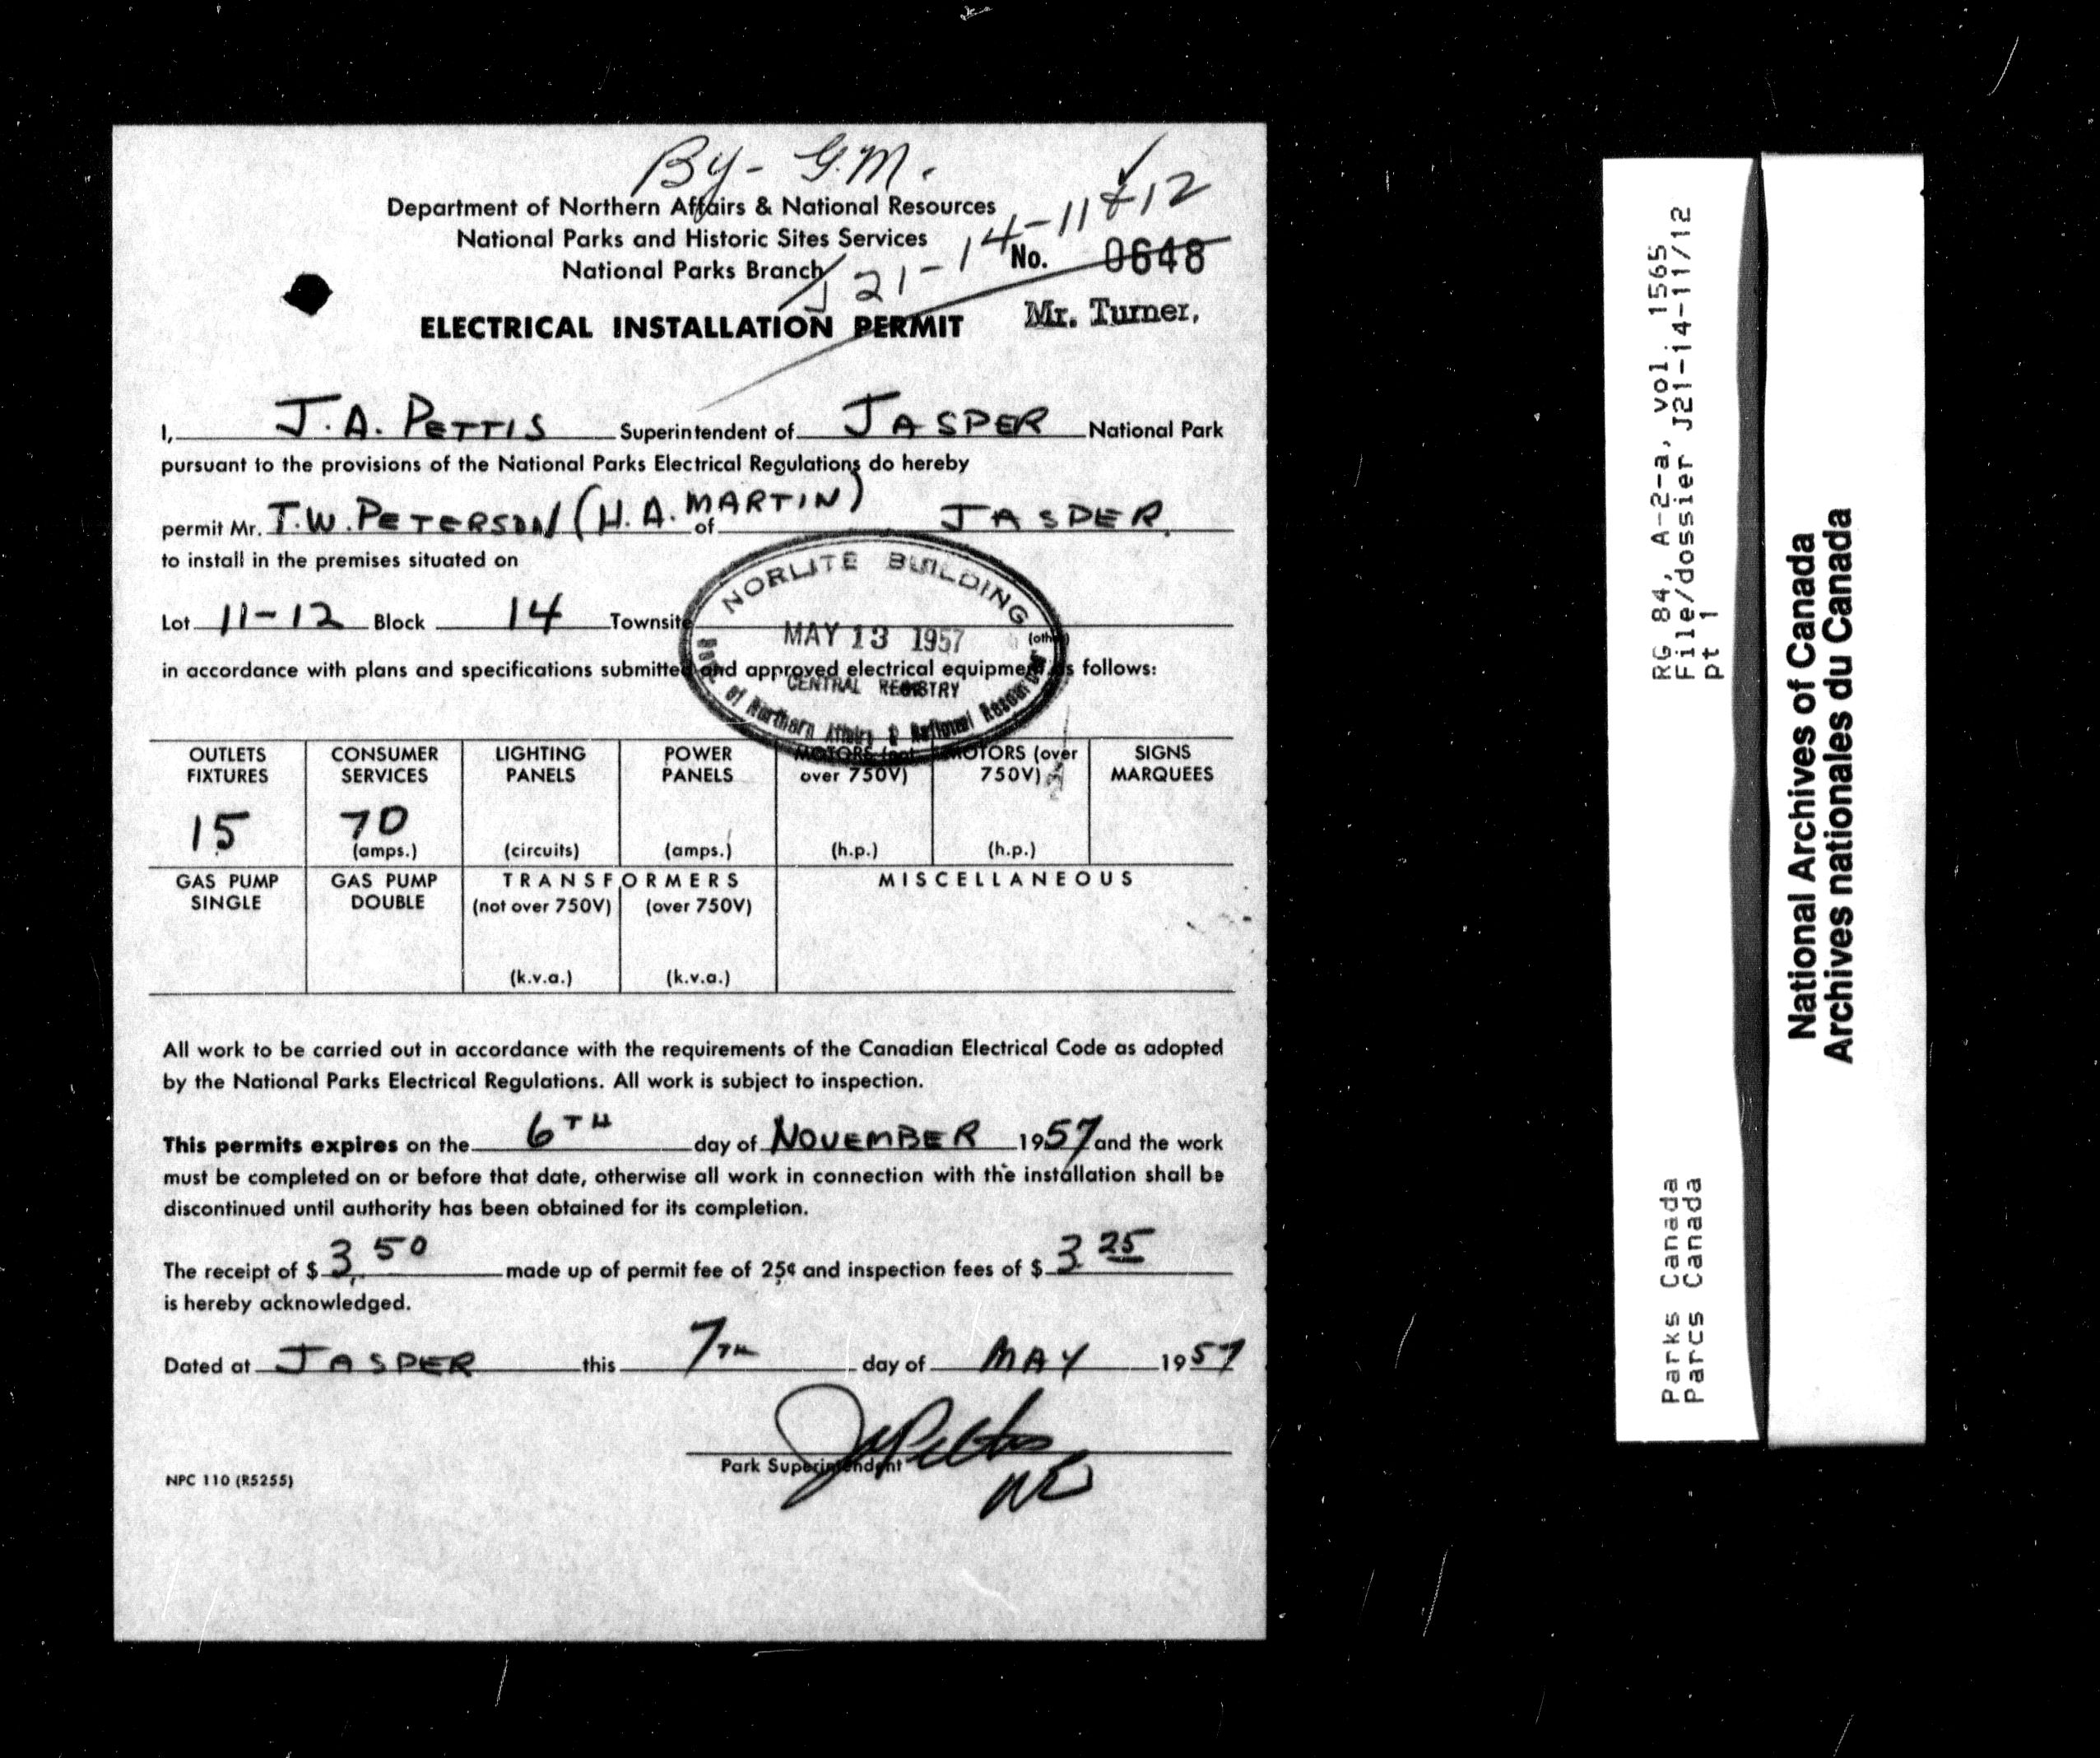 By - G.M.
Department of Northern Affairs & National Resources
National Parks and Historic Sites Services
National Parks Branch
J21-14-11+12
No. 0648
Mr. Turner,
ELECTRICAL INSTALLATION PERMIT
I, J.A. PETTIS Superintendent of JASPER National Park
pursuant to the provisions of the National Parks Electrical Regulations do hereby
permit Mr. T.W. PETERSON (H.A. MARTIN) of JASPER.
to install in the premises situated on
Lot 11-12 Block 14 Townsite (other)
NORLITE BUILDING
MAY 13 1957
CENTRAL REGISTRY
of Northern Affairs & National Resources
in accordance with plans and specifications submitted and approved electrical equipment as follows:
OUTLETS FIXTURES 15
CONSUMER SERVICES 70 (amps.)
LIGHTING PANELS (circuits)
POWER PANELS (amps.)
MOTORS (not over 750V) (h.p.)
MOTORS (over 750V) (h.p.)
SIGNS MARQUEES
GAS PUMP SINGLE
GAS PUMP DOUBLE
TRANSFORMERS
(not over 750V) (k.v.a.)
(over 750V) (k.v.a.)
MISCELLANEOUS
All work to be carried out in accordance with the requirements of the Canadian Electrical Code as adopted
by the National Parks Electrical Regulations. All work is subject to inspection.
This permits expires on the 6TH day of NOVEMBER 1957 and the work
must be completed on or before that date, otherwise all work in connection with the installation shall be
discontinued until authority has been obtained for its completion.
The receipt of $ 3.50 made up of permit fee of 25¢ and inspection fees of $ 3.25
is hereby acknowledged.
Dated at JASPER this 7TH day of MAY 1957
JAPettis
Park Superintendent
NPC 110 (R5255)
RG 84, A-2-a, vol. 1565
File/dossier J21-14-11/12
pt 1
Parks Canada
Parcs Canada
National Archives of Canada
Archives nationales du Canada